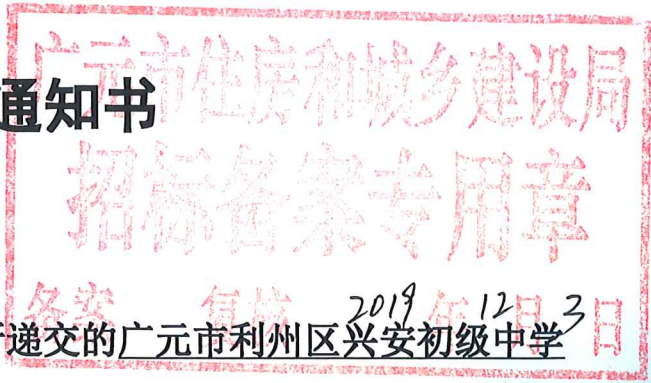 广元市住房和城乡建设局
通知书
招标备案专用章
备案 复核 2019年12月3日
递交的广元市利州区兴安初级中学